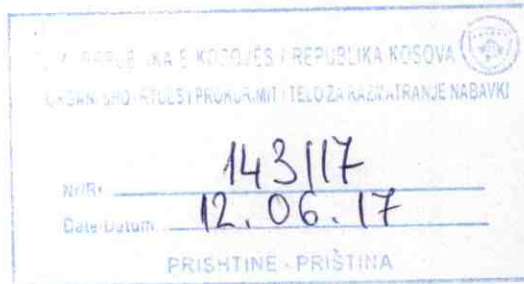 REPUBLIKA E KOSOVËS / REPUBLIKA KOSOVA
ORGANI SHQYRTUES I PROKURIMIT / TELO ZA RAZMATRANJE NABAVKI
Nr/Br. 143/17
Date-Datum: 12. 06. 17
PRISHTINE - PRIŠTINA